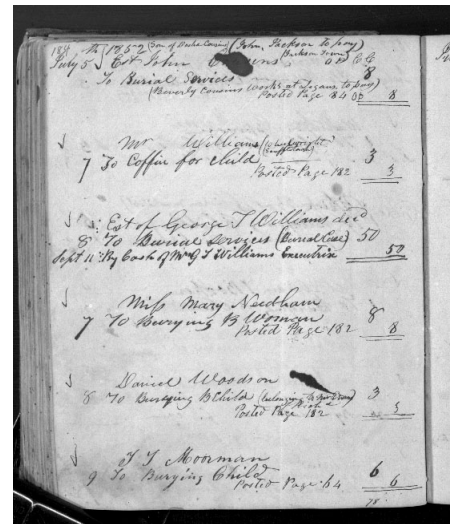 July 5 Est John
To Burial Services 8
(Beverly Cousins works at Logans to pay)
Posted Page 84 8
Mr Williams
7 To Coffin for child 3
Posted Page 182 3
Est of George T Williams decd
8 To Burial Services (Burial Case) 50
Sept 11 By Cash of Mrs G T Williams Executrix 50
Miss Mary Needham
7 To Burying B Woman 8
Posted Page 182 8
Daniel Woodson
8 To Burying B Child 3
Posted Page 182 3
T J Moorman
9 To Burying Child 6
Posted Page 64 6
78